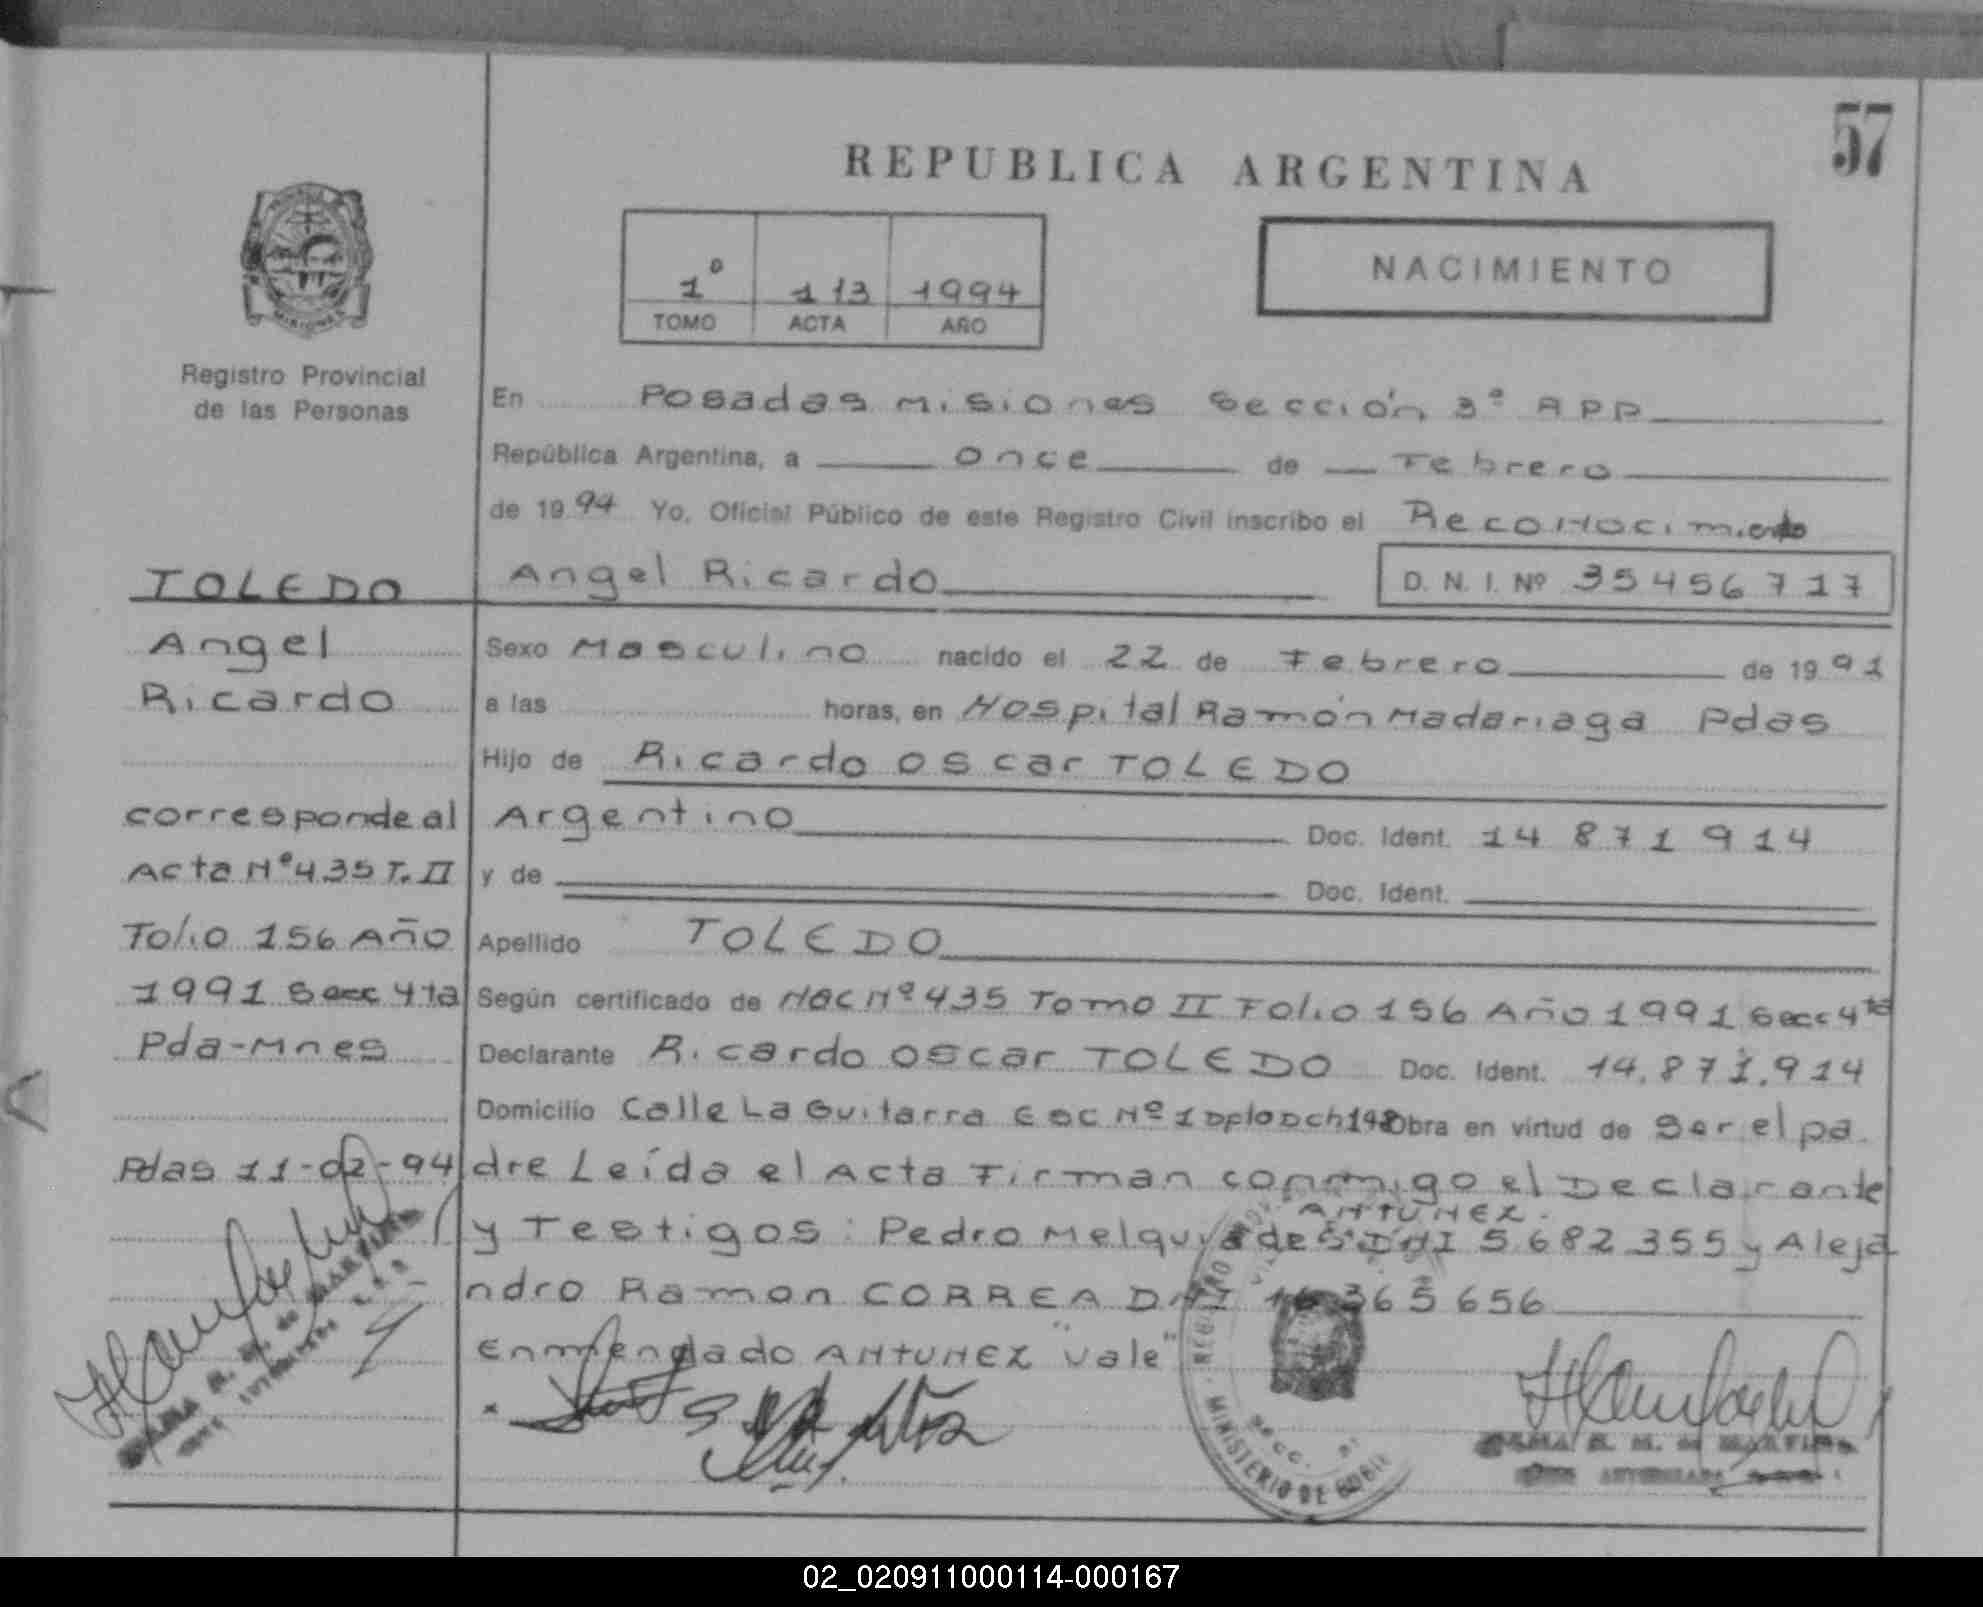 57
REPUBLICA ARGENTINA
1º 113 1994
TOMO ACTA AÑO
NACIMIENTO
MISIONES
Registro Provincial
de las Personas
En Posadas Misiones Sección 3ª APP
República Argentina, a once de Febrero
de 1994 Yo, Oficial Público de este Registro Civil inscribo el Reconocimiento
TOLEDO
Angel
Ricardo
corresponde al
Acta Nº 435 T. II
Folio 156 Año
1991 Secc 4ta
Pda-Mnes
Pdas 11-02-94
Angel Ricardo D. N. I. Nº 35456717
Sexo Masculino nacido el 22 de Febrero de 1991
a las horas, en Hospital Ramón Madariaga Pdas
Hijo de Ricardo Oscar TOLEDO
Argentino Doc. Ident. 14 871 914
y de Doc. Ident.
Apellido TOLEDO
Según certificado de Nac Nº 435 Tomo II Folio 156 Año 1991 Secc 4ta
Declarante Ricardo Oscar TOLEDO Doc. Ident. 14.871.914
Domicilio Calle La Guitarra Esc Nº 1 Dpto Dch 148 Obra en virtud de Ser el pa
dre Leída el Acta Firman conmigo el Declarante
ANTUNEZ
y Testigos: Pedro Melquiades DNI 5 682 355 y Aleja
ndro Ramon CORREA DNI 16 365 656
Enmendado ANTUNEZ "Vale"
MINISTERIO DE GOBIE
02_020911000114-000167